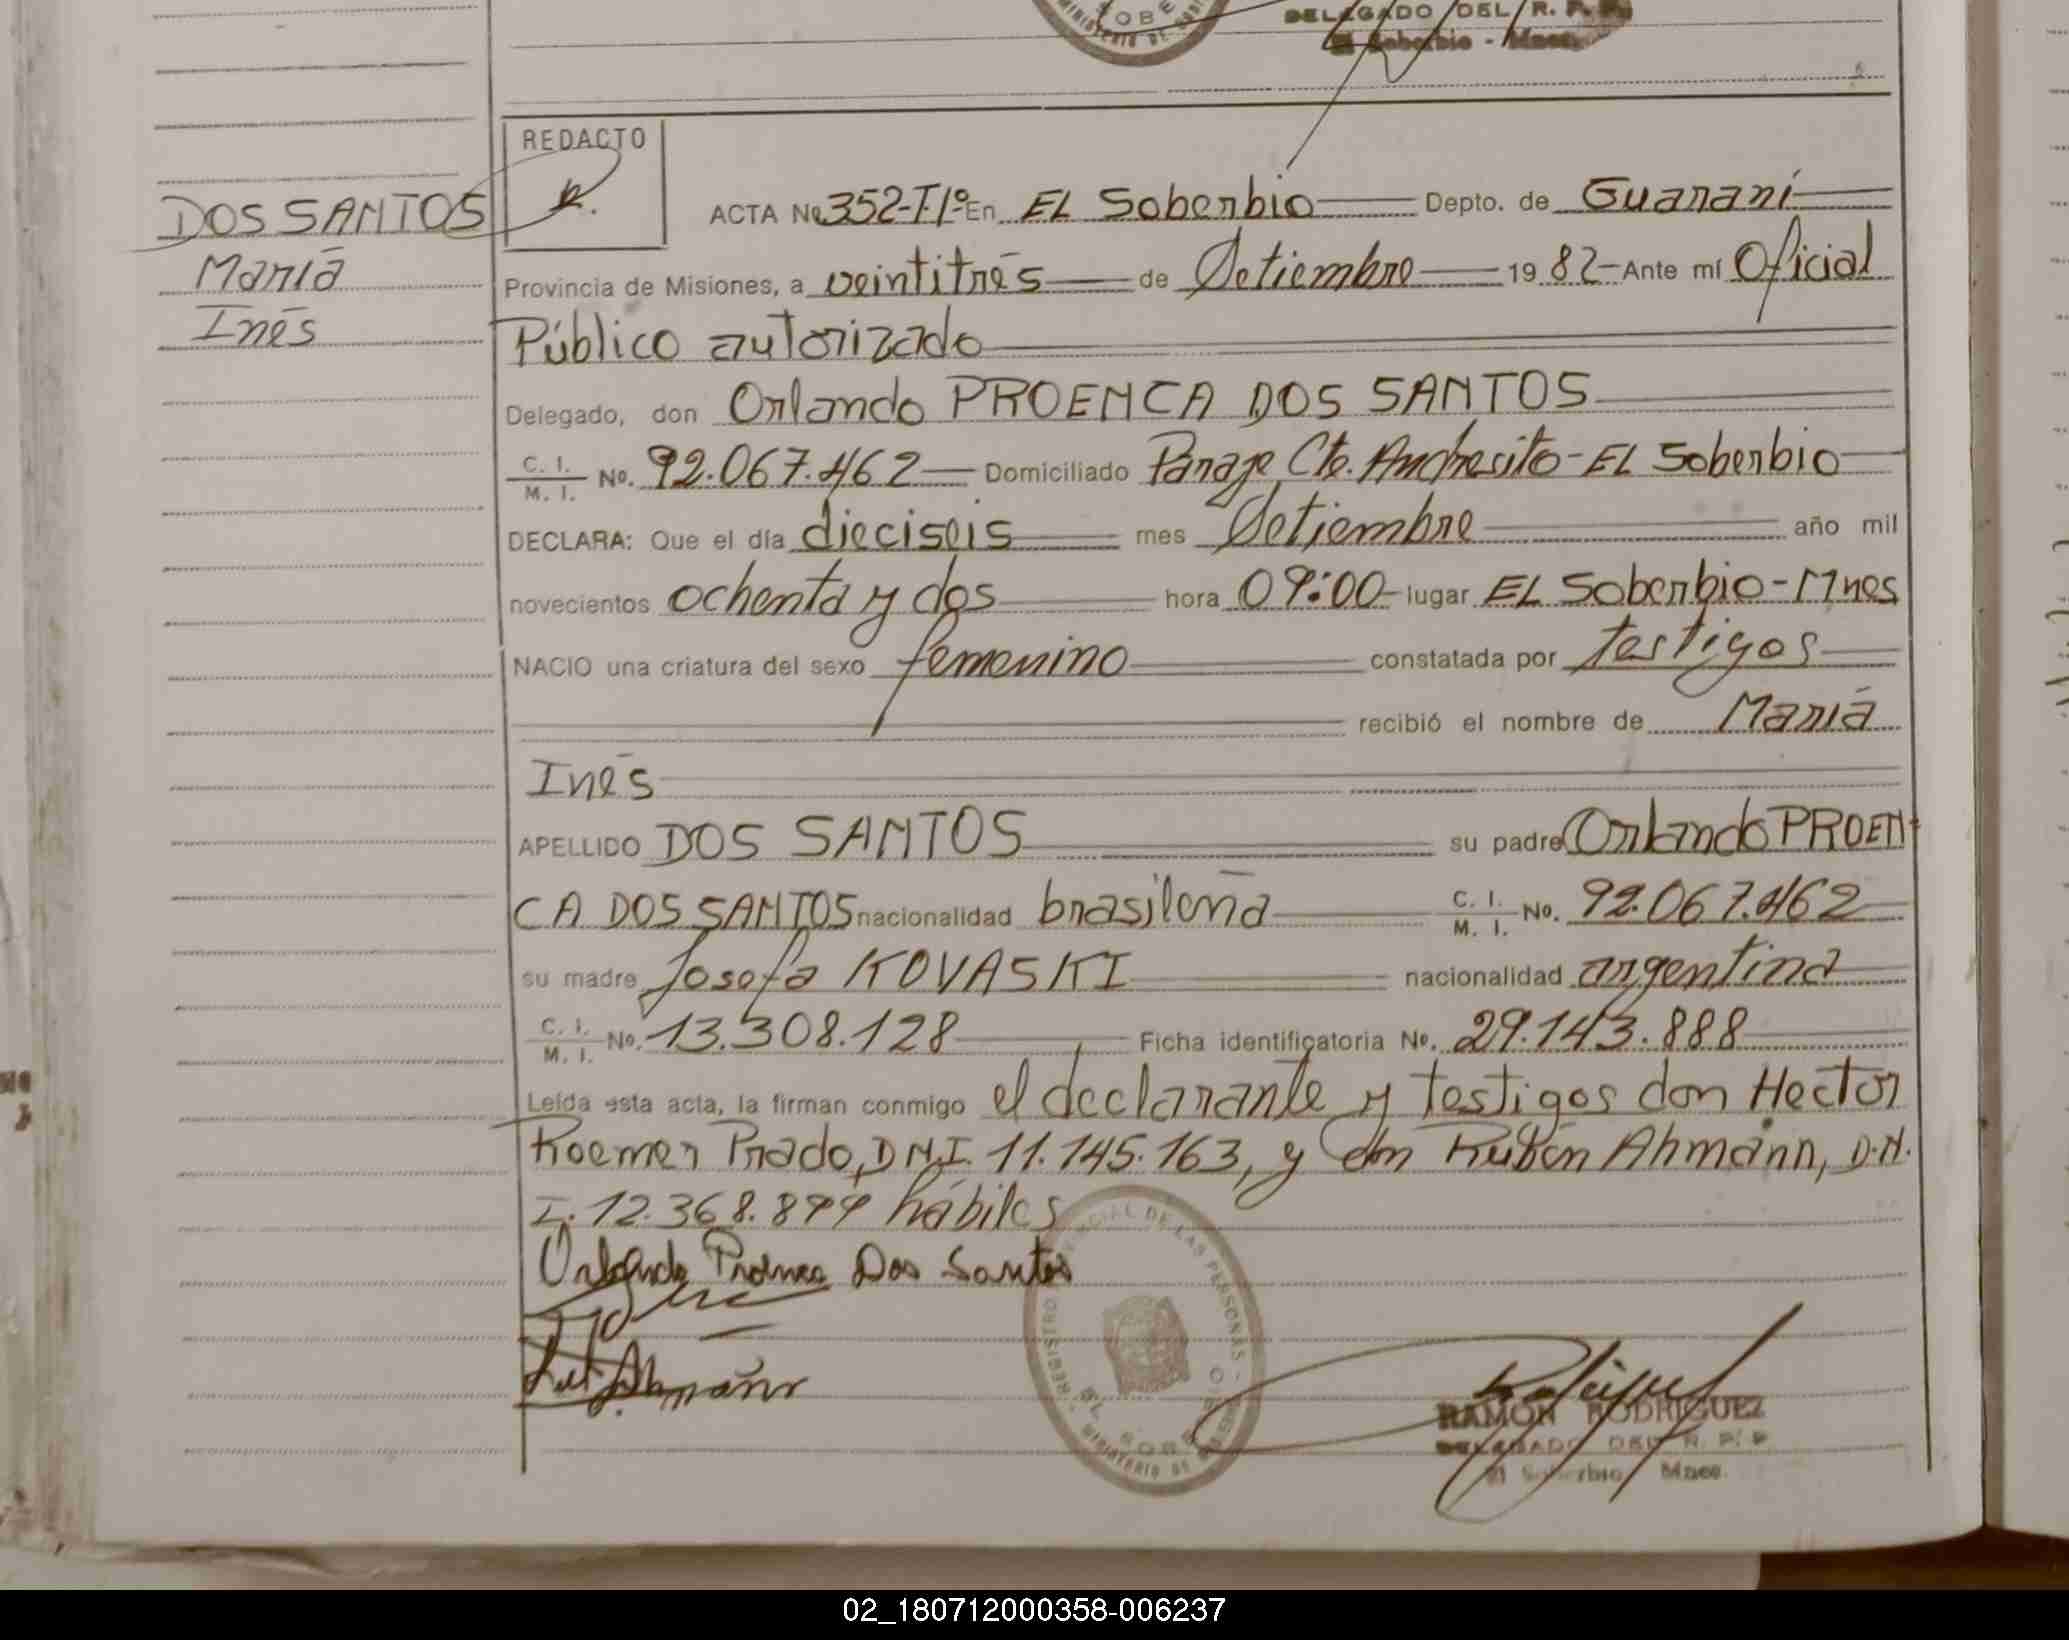 DELEGADO DEL R. P. P.
El Soberbio - Mnes.
REDACTO
DOS SANTOS
María
Inés
ACTA No 352-T1º En EL Soberbio Depto. de Guaraní
Provincia de Misiones, a veintitrés de Setiembre 19 82 Ante mí Oficial
Público autorizado
Delegado, don Orlando PROENCA DOS SANTOS
C. I. M. I. No. 92.067.462 Domiciliado Paraje Cte. Andresito - EL Soberbio
DECLARA: Que el día dieciseis mes Setiembre año mil
novecientos ochenta y dos hora 09:00 lugar EL Soberbio - Mnes
NACIO una criatura del sexo femenino constatada por testigos
recibió el nombre de María
Inés
APELLIDO DOS SANTOS su padre Orlando PROEN
CA DOS SANTOS nacionalidad brasileña C. I. M. I. No. 92.067.462
su madre Josefa KOVASKI nacionalidad argentina
C. I. M. I. No. 13.308.128 Ficha identificatoria No. 29.143.888
Leída esta acta, la firman conmigo el declarante y testigos don Hector
Roemer Prado, D.N.I. 11.145.163, y don Rubén Ahmann, D.N.
I. 12.368.899 hábiles
Orlando Proenca Dos Santos
RAMON RODRIGUEZ
DELEGADO DEL R. P. P.
El Soberbio Mnes.
02_180712000358-006237